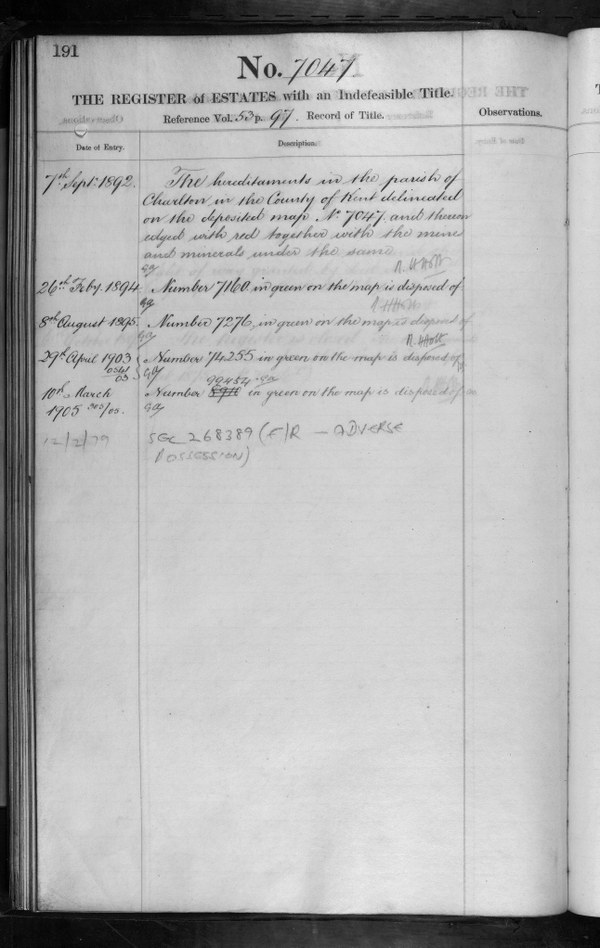 191
No. 7047
THE REGISTER of ESTATES with an Indefeasible Title.
Reference Vol. 53 p. 97. Record of Title.
Observations.
Date of Entry.
Description.
7th Sept. 1892. The hereditaments in the parish of
Charlton in the County of Kent delineated
on the deposited map No. 7047, and thereon
edged with red together with the mines
and minerals under the same
26th Feby. 1894 Number 7160 in green on the map is disposed of
8th August 1895. Number 7276, in green on the map is disposed of
29th April 1903 Number 74255 in green on the map is disposed of
10th March Number 99454 in green on the map is disposed of
1905 305/05.
12/2/79 SGL 268389 (F/R — ADVERSE
POSSESSION)